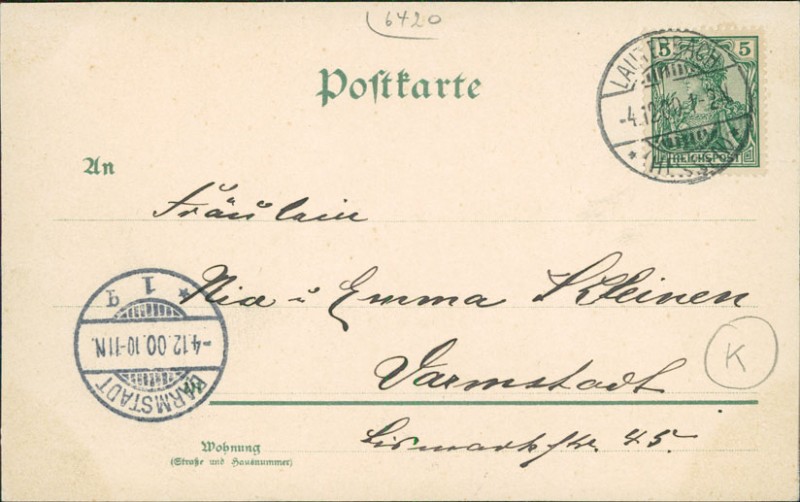 6420
Postkarte
5 5
REICHSPOST
LAUTERBACH
-4.12.00.
An
Fräulein
Mia u Emma Kleinen
Darmstadt
Bismarckstr. 45.
K
DARMSTADT
-4.12.00.10-11N.
1 g
Wohnung
(Straße und Hausnummer)